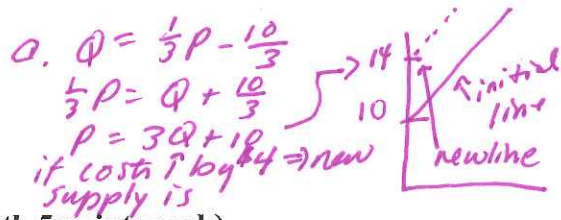 a. Q = 1/3 P - 10/3
1/3 P = Q + 10/3
P = 3Q + 10
if costs ↑ by $4 ⇒ new
supply is
14
10
↑ initial
line
newline